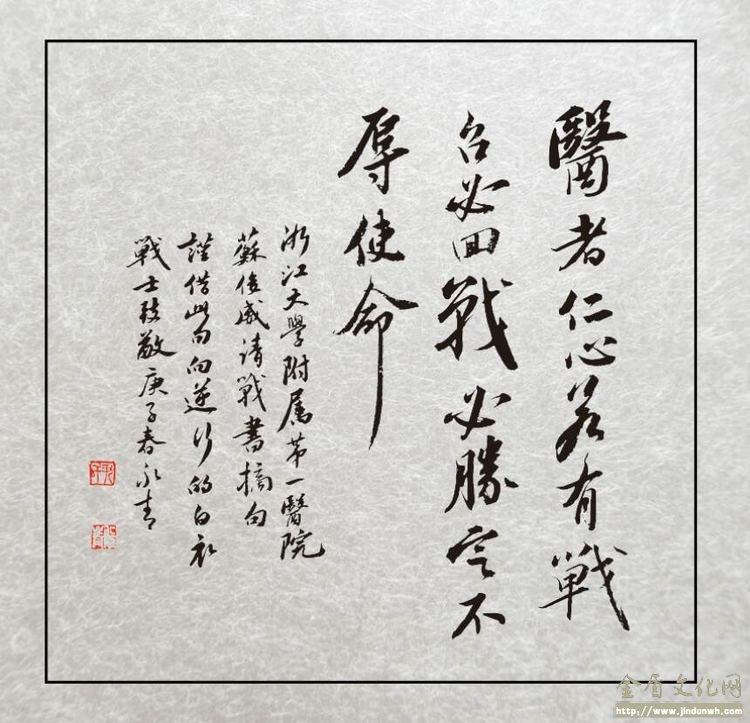 醫者仁心若有戰
召必回戰必勝定不
辱使命
浙江大學附属第一醫院
蘇俊威请戰書摘句
謹借此句向逆行的白衣
戰士致敬庚子春永青
金盾文化网
http://www.jindunwh.com